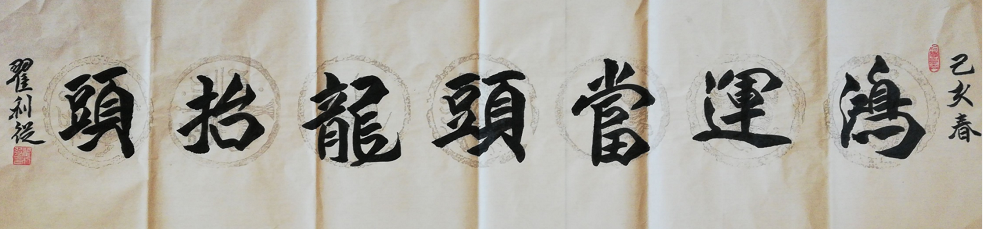 己亥春
鴻運當頭龍抬頭
翟利從